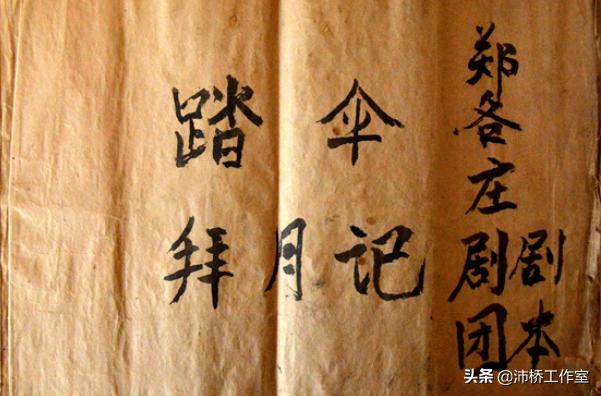 踏伞
拜月记
郑各庄剧团
剧本
头条 @沛桥工作室